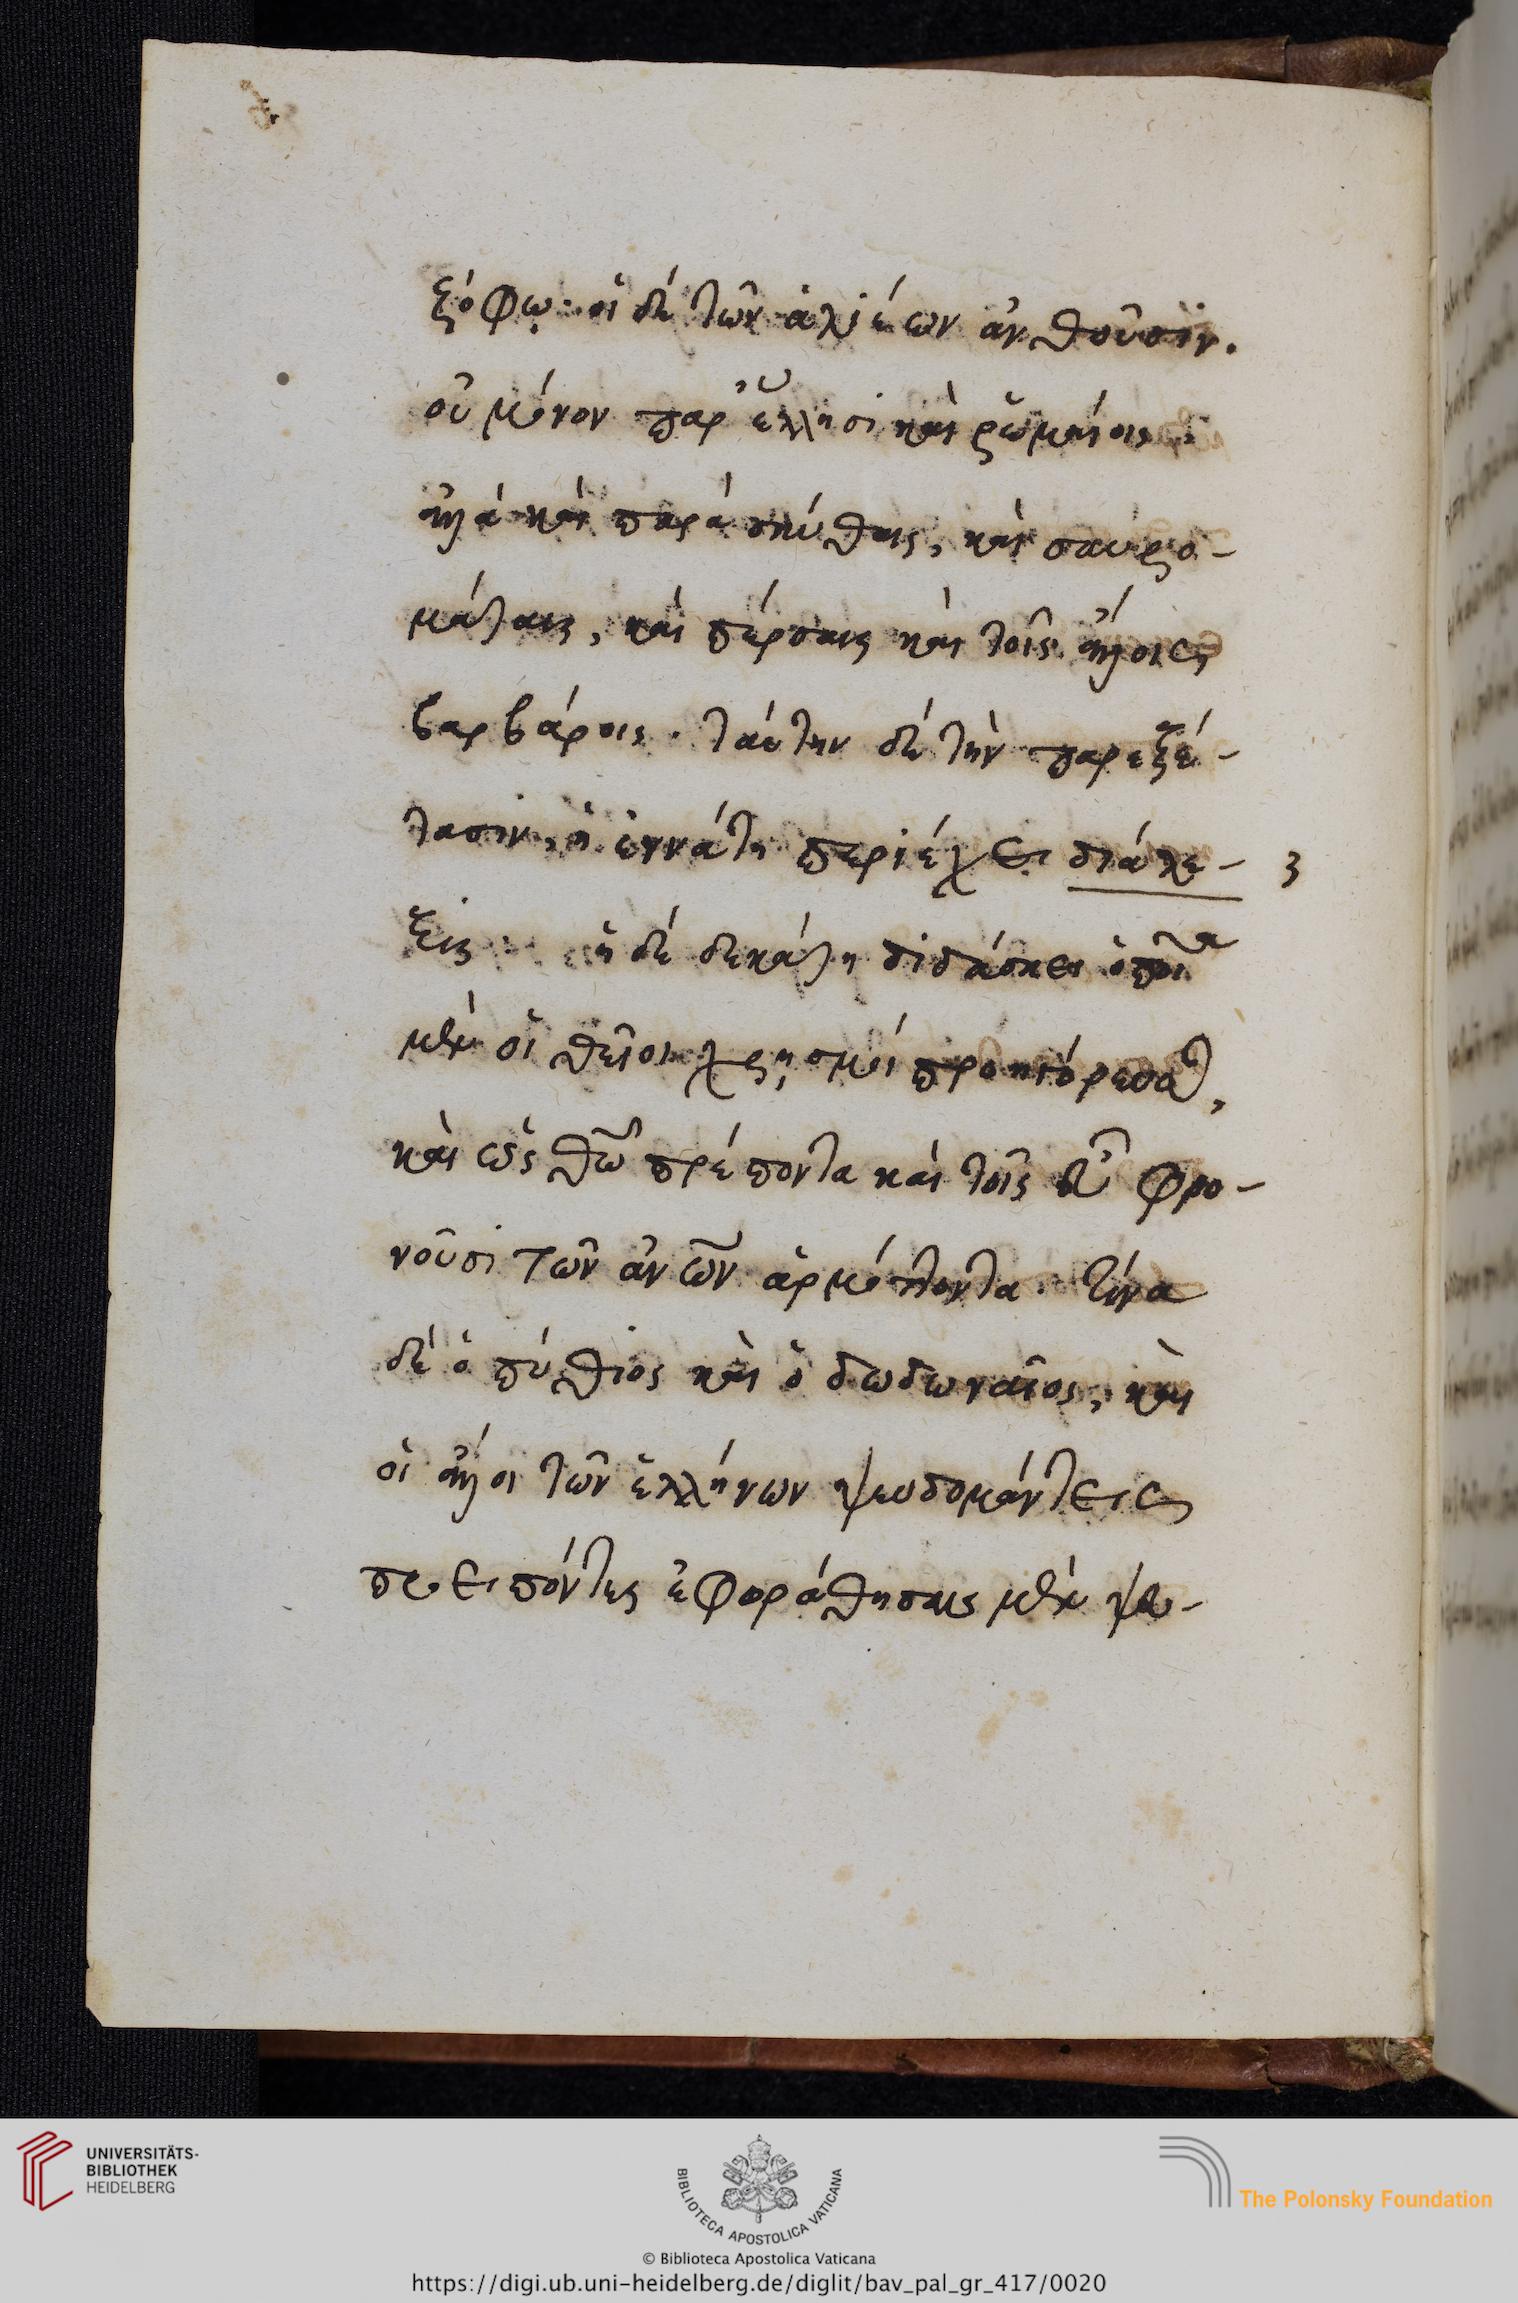 ζόφῳ· οἱ δὲ τῶν ἁλιέων ἀνθοῦσιν.
οὐ μόνον παρ' ἕλλησι καὶ ῥωμαίοις,
ἀλλὰ καὶ παρὰ σκύθαις, καὶ σαυρο-
μάταις, καὶ πέρσαις καὶ τοῖς ἄλλοις
βαρβάροις. ταύτην δὲ τὴν παρεξέ-
τασιν, ἡ ἐννάτη περιέχει διάλε- 3
ξις. ἡ δὲ δεκάτη διδάσκει ὁποῖα
μὲν οἱ θεῖοι χρησμοὶ προηγόρευσαν,
καὶ ὡς θῶ πρέποντα καὶ τοῖς εὖ φρο-
νοῦσι τῶν ἀνων ἁρμόττοντα. τίνα
δὲ ὁ πύθιος καὶ ὁ δωδωναῖος, καὶ
οἱ ἄλλοι τῶν ἑλλήνων ψευδομάντεις
προειπόντες ἐφωράθησαν μὲν ψευ-
UNIVERSITÄTS-
BIBLIOTHEK
HEIDELBERG
BIBLIOTECA APOSTOLICA VATICANA
The Polonsky Foundation
© Biblioteca Apostolica Vaticana
https://digi.ub.uni-heidelberg.de/diglit/bav_pal_gr_417/0020